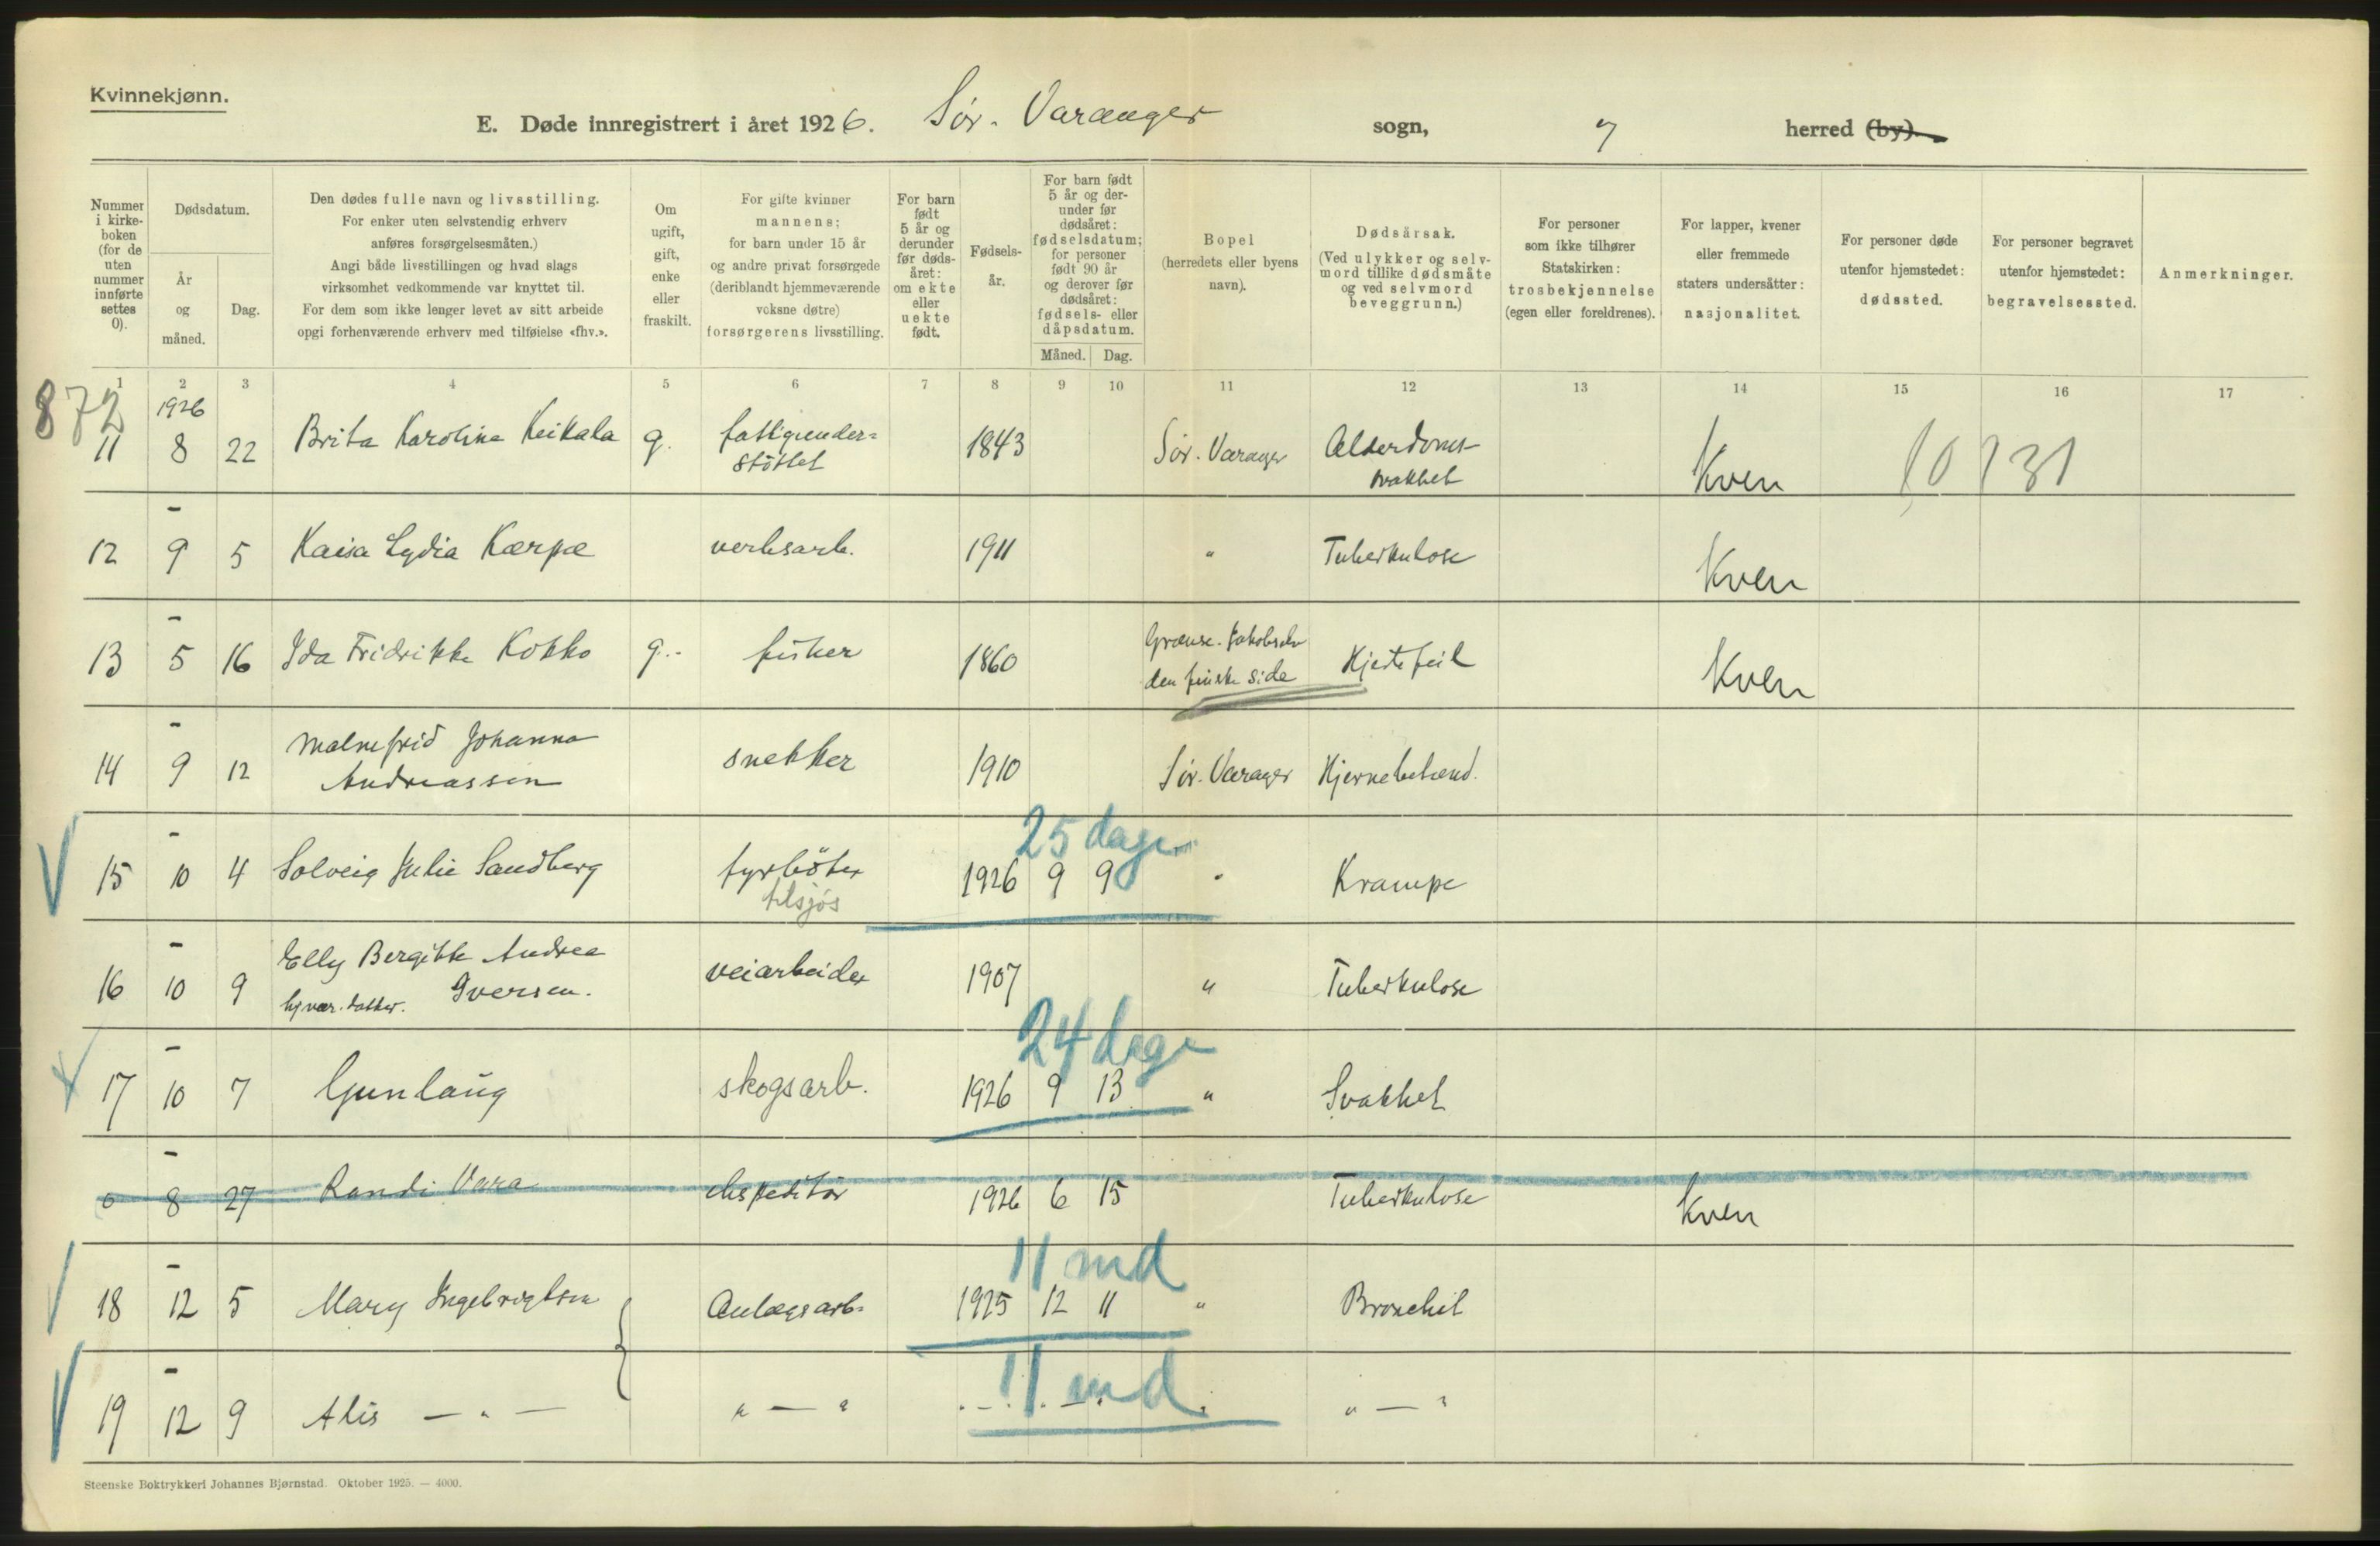 Kvinnekjønn.
E. Døde innregistrert i året 1926. Sør-Varanger sogn, " herred (by).
Nummer i kirkeboken (for de uten nummer innførte settes 0).
Dødsdatum.
År og måned.
Dag.
Den dødes fulle navn og livsstilling.
For enker uten selvstendig erhverv
anføres forsørgelsesmåten.)
Angi både livsstillingen og hvad slags
virksomhet vedkommende var knyttet til.
For dem som ikke lenger levet av sitt arbeide
opgi forhenværende erhverv med tilføielse «fhv.».
Om ugift, gift, enke eller fraskilt.
For gifte kvinner
mannens;
for barn under 15 år
og andre privat forsørgede
(deriblandt hjemmeværende
voksne døtre)
forsørgerens livsstilling.
For barn født 5 år og derunder før dødsåret: om ekte eller uekte født.
Fødselsår.
For barn født 5 år og derunder før dødsåret: fødselsdatum; for personer født 90 år og derover før dødsåret: fødsels- eller dåpsdatum.
Måned. Dag.
Bopel
(herredets eller byens
navn).
Dødsårsak.
(Ved ulykker og selvmord tillike dødsmåte og ved selvmord beveggrunn.)
For personer
som ikke tilhører
Statskirken:
trosbekjennelse
(egen eller foreldrenes).
For lapper, kvener
eller fremmede
staters undersåtter:
nasjonalitet.
For personer døde
utenfor hjemstedet:
dødssted.
For personer begravet
utenfor hjemstedet:
begravelsessted.
Anmerkninger.
1 2 3 4 5 6 7 8 9 10 11 12 13 14 15 16 17
872
1926
11 8 22 Brita Karolina Keikala g. fattigunderstöttet 1843 Sør-Varanger Alderdomssvakhet Kven 10131
12 - 9 5 Kaisa Lydia Kærpæ verksarb. 1911 " Tuberkulose Kven
13 - 5 16 Ida Fridrikke Kokko g.- fisker 1860 Grænse-Jakobselv den finske side Hjertefeil Kven
14 - 9 12 Malmfrid Johanna Andreassen snekker 1910 Sør-Varanger Hjernebetænd.
25 dager
15 - 10 4 Solveig Julie Sandberg fyrböter tilsjøs 1926 9 9 " Krampe
16 - 10 9 Elly Bergitte Andrea Iversen. hjvær. datter. veiarbeider 1907 " Tuberkulose
24 dage
17 - 10 7 Gunlaug skogsarb. 1926 9 13 " Svakhet
0 - 8 27 Randi Vara ekspeditør 1926 6 15 Tuberkulose Kven
11 md
18 - 12 5 Mary Ingebrigtsen Anlægsarb. 1925 12 11 " Bronchit
11 md
19 - 12 9 Alis — " — " — " " — "
Steenske Boktrykkeri Johannes Bjørnstad. Oktober 1925. — 4000.